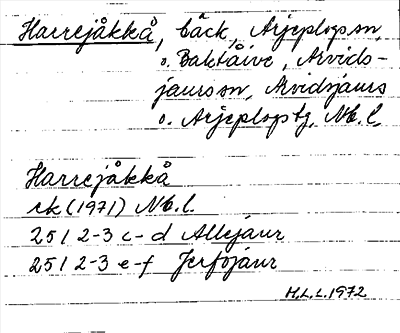 Harrejåkkå, bäck, Arjeplogs sn,
o. Baktåive, Arvids-
jaurs sn, Arvidsjaurs
o. Arjeplogs tg, Nb. l.
Harrejåkkå
ek (1971) Nb. l.
25 I 2-3 c-d Allejaur
25 I 2-3 e-f Jerfojaur
H.L.L. 1972